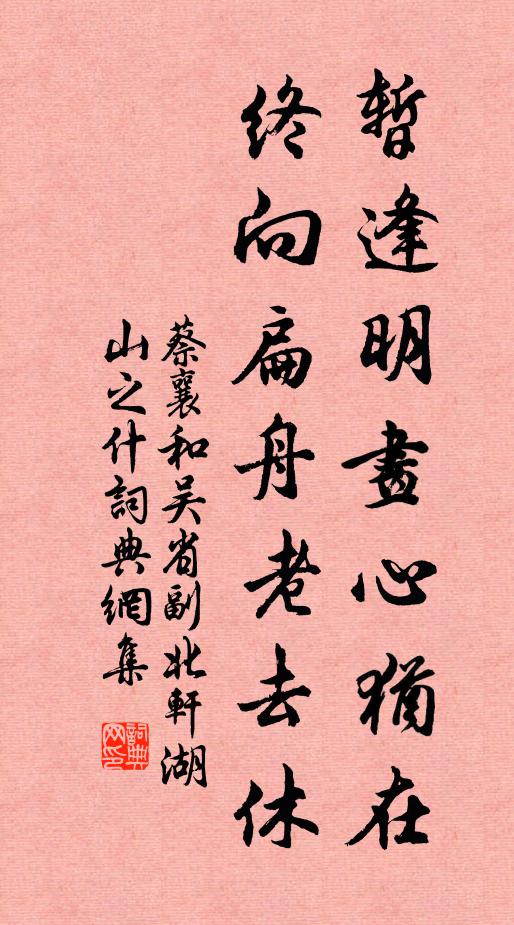 暫逢明畫心猶在
終向扁舟老去休
蔡襄和吴省副北軒湖
山之什詞典網集
詞典
网印